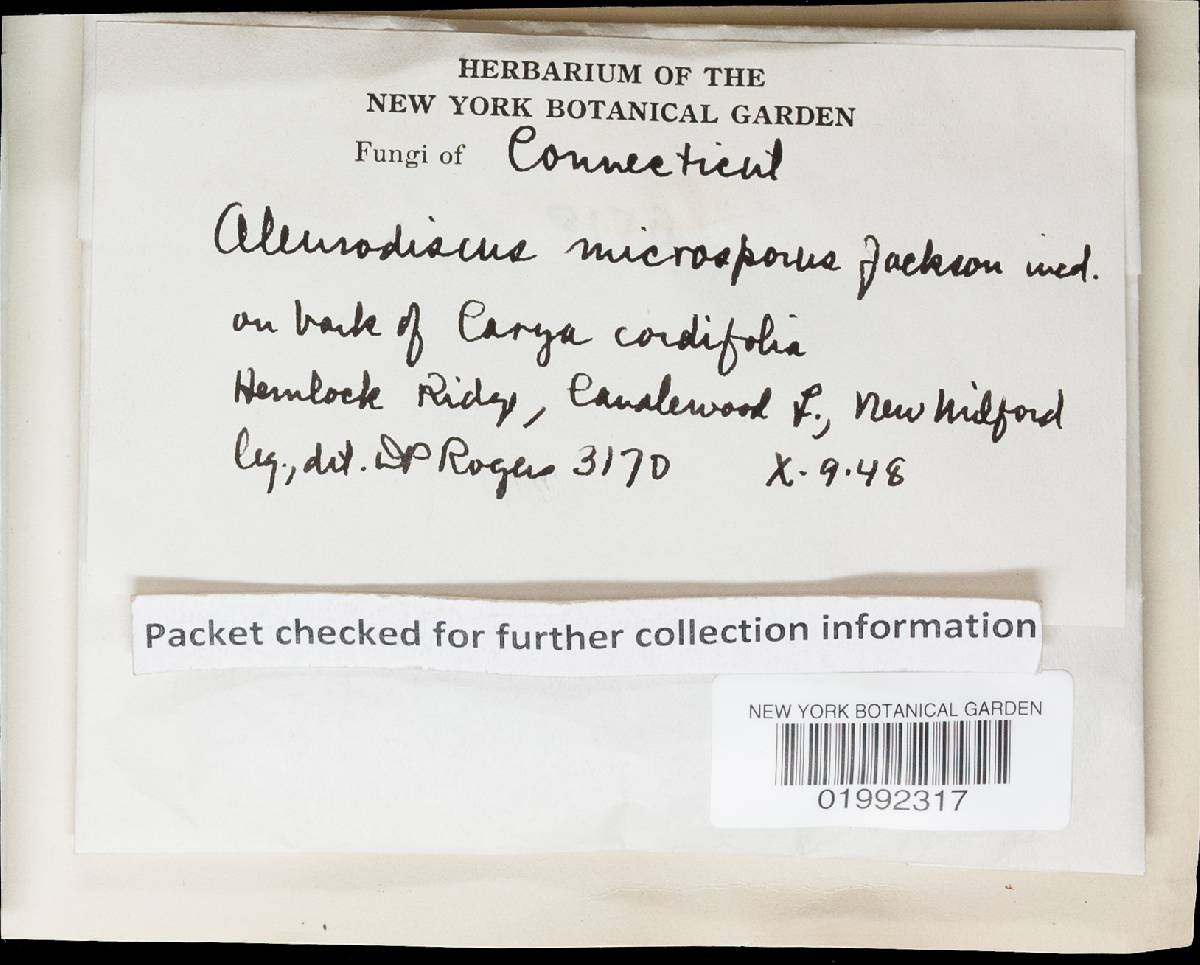 HERBARIUM OF THE
NEW YORK BOTANICAL GARDEN
Fungi of Connecticut
Aleurodiscus microsporus Jackson ined.
on bark of Carya cordifolia
Hemlock Ridge, Candlewood L., New Milford
leg., det. DP Rogers 3170 X. 9. 48
Packet checked for further collection information
NEW YORK BOTANICAL GARDEN
01992317